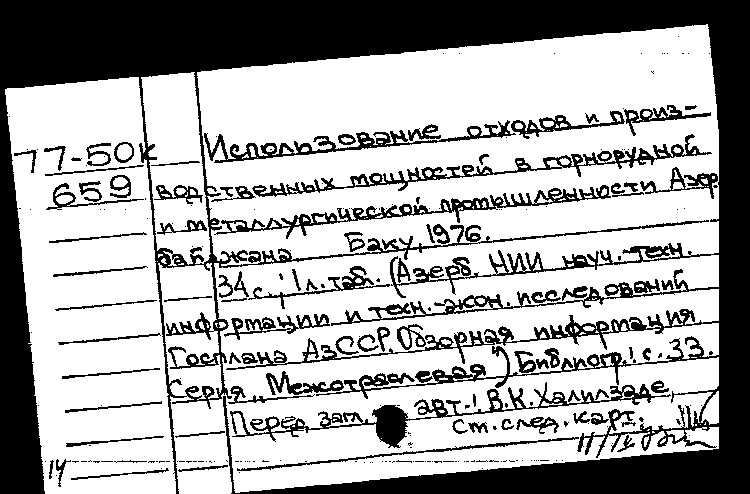 77-50к Использование отходов и произ-
659 водственных мощностей в горнорудной
и металлургической промышленности Азер
байджана. Баку, 1976.
34 с.; 1 л. табл. (Азерб. НИИ науч.-техн.
информации и техн.-экон. исследований
Госплана АзССР. Обзорная информация.
Серия „Межотраслевая") Библиогр.: с. 33.
Перед загл. авт.: В.К. Халилзаде,
См. след. карт.
14